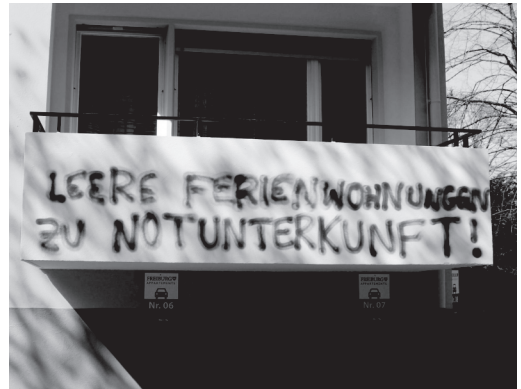 LEERE FERIENWOHNUNGEN
ZU NOTUNTERKUNFT!
Nr. 06
Nr. 07